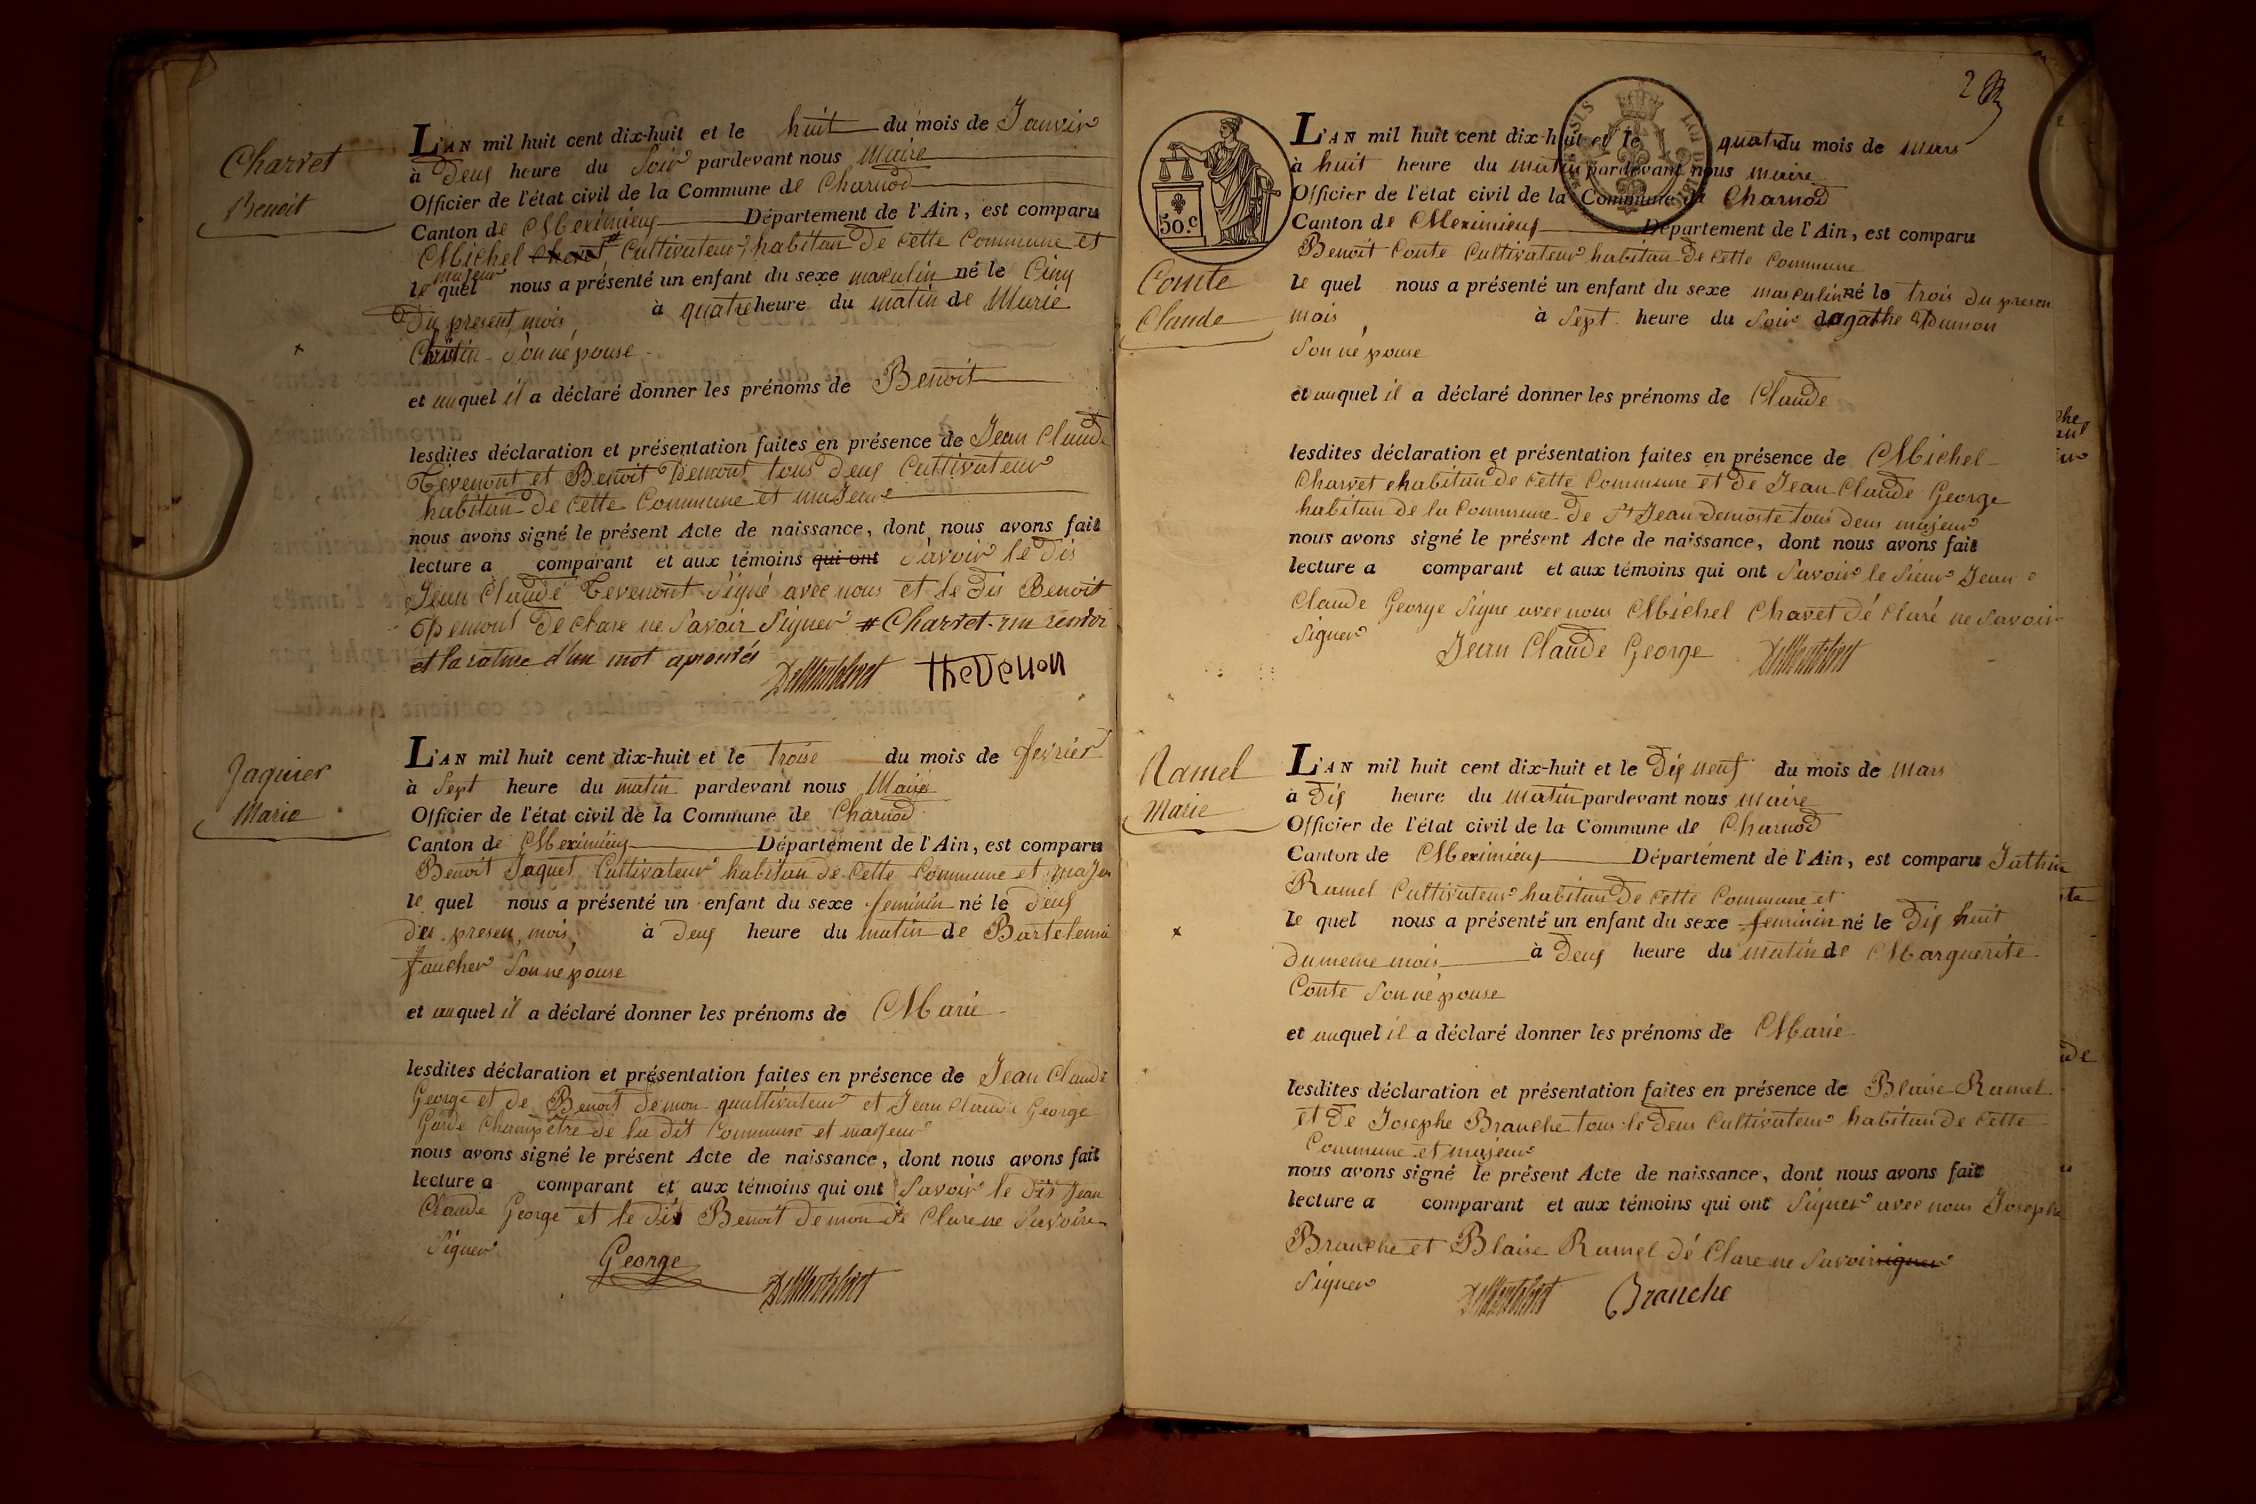 Charvet
Benoit
L'AN mil huit cent dix-huit et le huit du mois de Janvier
à Deux heure du Soir pardevant nous Maire
Officier de l'état civil de la Commune de Charnod
Canton de Meximieux Département de l'Ain, est comparu
Michel # Cultivateur habitan De cette Commune et
majeur
le quel nous a présenté un enfant du sexe masculin né le Cinq
Du present mois à quatre heure du matin de Marie
Christin Son né pouse
et auquel il a déclaré donner les prénoms de Benoit
lesdites déclaration et présentation faites en présence de Jean Claude
Tevenont et Benoit Demont tous Deux Cultivateur
habitan De cette Commune et majeur
nous avons signé le présent Acte de naissance, dont nous avons fait
lecture a comparant et aux témoins qui ont Savoir le Dis
Jean Claude Tevenont Signé avec nous et le Dis Benoit
Demont De Clare ne Savoir Signer # Charvet un renvoi
et la rature d'un mot aprouvés
thevenon
Jaquier
Marie
L'AN mil huit cent dix-huit et le troise du mois de fevrier
à Sept heure du matin pardevant nous Maire
Officier de l'état civil de la Commune de Charnod
Canton de Meximieux Département de l'Ain, est comparu
Benoit Jaquet Cultivateur habitan De Cette Commune et majeu
le quel nous a présenté un enfant du sexe feminin né le Deux
Du presen mois à Deux heure du matin de Bartelemie
faucher Son né pouse
et auquel il a déclaré donner les prénoms de Marie
lesdites déclaration et présentation faites en présence de Jean Claude
George et de Benoit Demon quultivateur et Jean Claude George
Garde Champêtre de la dit Commune et majeur
nous avons signé le présent Acte de naissance, dont nous avons fait
lecture a comparant et aux témoins qui ont Savoir le Dis Jean
Claude George et le Dis Benoit Demon De Clare ne Savoire
Signer
George
2
50.c
Comte
Claude
L'AN mil huit cent dix-huit et le quatr du mois de mars
à huit heure du matin pardevant nous maire
Officier de l'état civil de la Commune de Charnod
Canton de Meximieux Département de l'Ain, est comparu
Benoit Conte Cultivateur habitan De cette Commune
le quel nous a présenté un enfant du sexe masculin né le trois Du presen
mois à Sept heure du Soir dagathe Dumon
Son né pouse
et auquel il a déclaré donner les prénoms de Claude
lesdites déclaration et présentation faites en présence de Michel
Charvet habitan De cette Commune et De Jean Claude George
habitan de la Commune De St Jean Demoste tous Deux majeur
nous avons signé le présent Acte de naissance, dont nous avons fait
lecture a comparant et aux témoins qui ont Savoir le Sieur Jean
Claude George Signe avec nous Michel Chavet Dé Claré ne Savoir
Signer
Jean Claude George
Ramel
Marie
L'AN mil huit cent dix-huit et le Dix neuf du mois de Mars
à Dix heure du Matin pardevant nous maire
Officier de l'état civil de la Commune de Charnod
Canton de Meximieux Département de l'Ain, est comparu
Ramel Cultivateur habitan De cette Commune et
le quel nous a présenté un enfant du sexe feminin né le Dix huit
Du meme mois à Deux heure du matin de Marguerite
Conte Son né pouse
et auquel il a déclaré donner les prénoms de Marie
lesdites déclaration et présentation faites en présence de Blaise Ramel
et De Josephe Branche tous le Deux Cultivateur habitan De cette
Commune et majeur
nous avons signé le présent Acte de naissance, dont nous avons fait
lecture a comparant et aux témoins qui ont Signer avec nous Josephe
Branche et Blaise Ramel Dé Clare ne Savoir signer
Signer
Branche